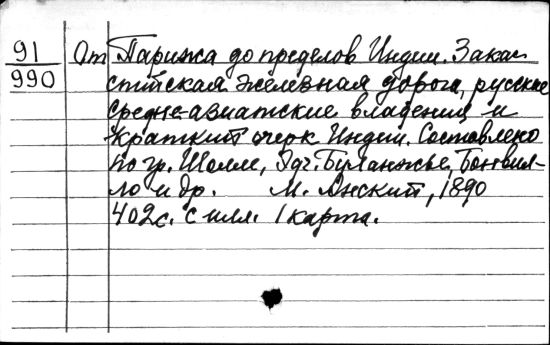 91 От Парижа до пределов Индии. Закас-
990 пийская железная дорога, русские
средне-азиатские владения и
краткий очерк Индии. Составлено
по гр. Шолле, Эдг. Буланжье, Бонвил-
ло и др. М. Анский, 1890
402с. с илл. 1 карта.